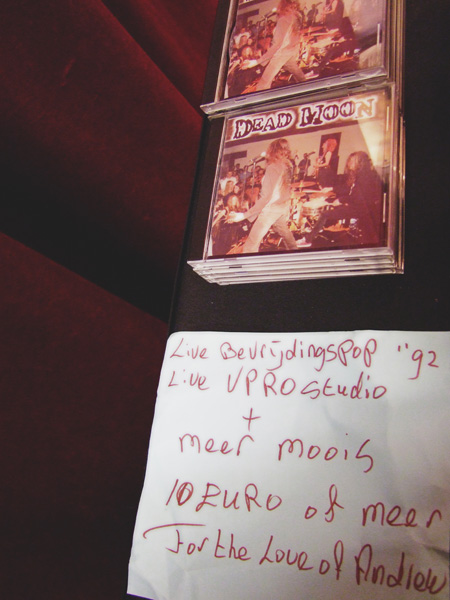 DEAD MOON
Live BevrijdingsPOP "92
Live VPRO studio
+
meer moois
10 EURO of meer
For the Love of Andrew